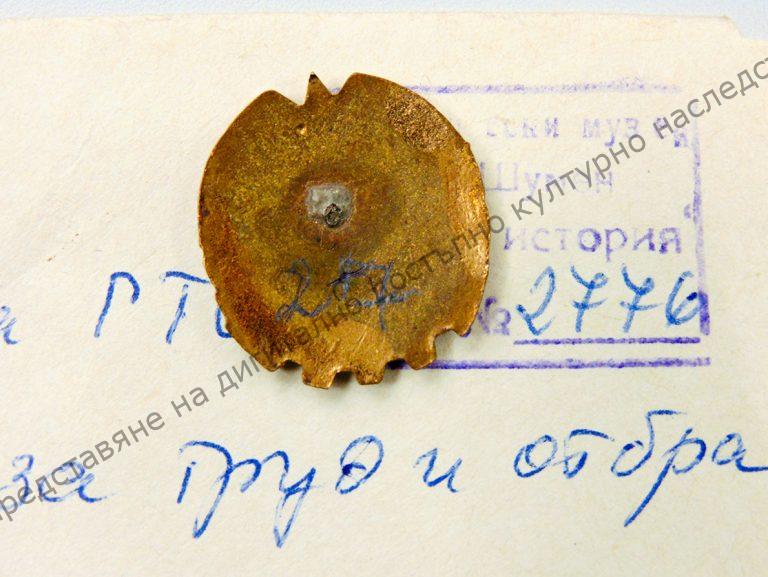 ески музей
Шумен
история
ГТО
№ 2776
за труд и отбра
представяне на дигитално достъпно културно наследст